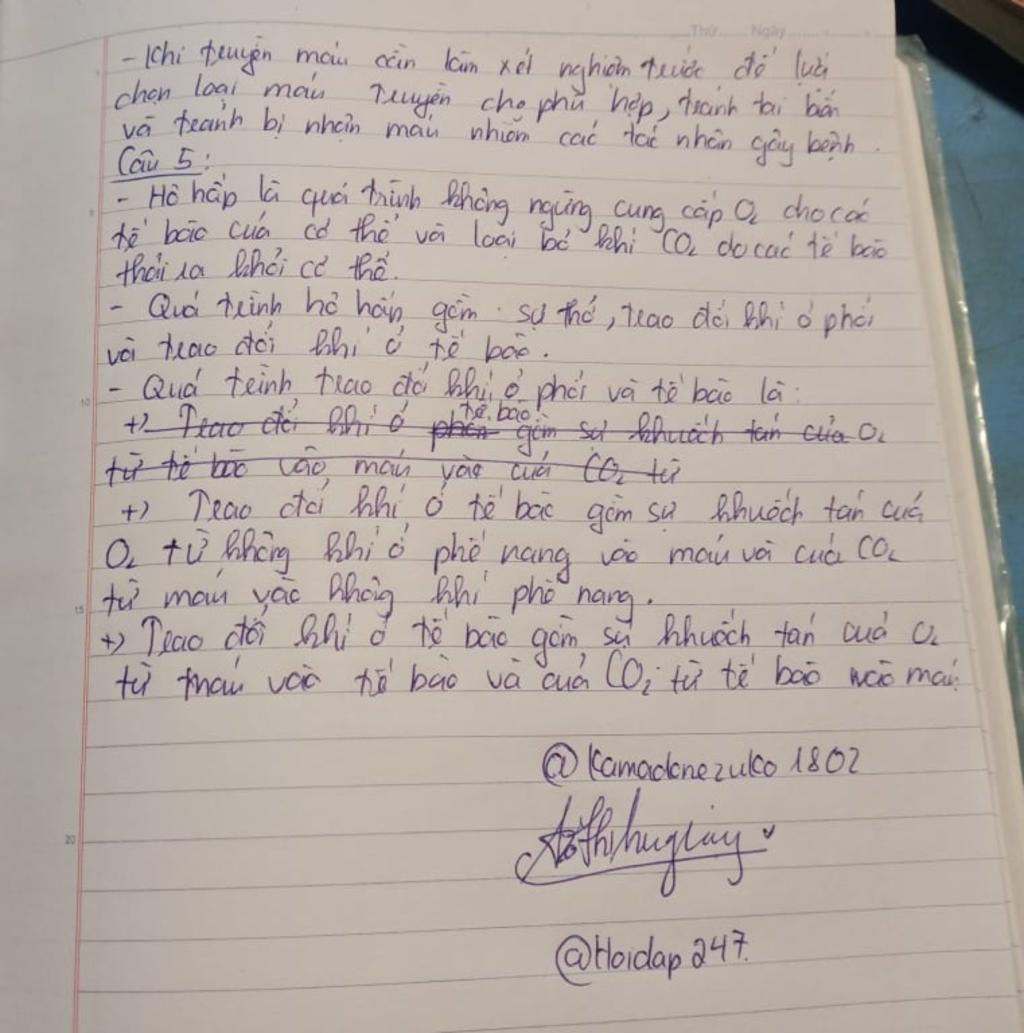 Thứ Ngày
- Khi truyền máu cần làm xét nghiệm trước để lựa
chọn loại máu truyền cho phù hợp, tránh tai biến
và tránh bị nhận máu nhiễm các tác nhân gây bệnh.
Câu 5:
- Hô hấp là quá trình không ngừng cung cấp O₂ cho các
tế bào của cơ thể và loại bỏ khí CO₂ do các tế bào
thải ra khỏi cơ thể.
- Quá trình hô hấp gồm: sự thở, trao đổi khí ở phổi
và trao đổi khí ở tế bào.
- Quá trình trao đổi khí ở phổi và tế bào là:
tế bào
+) Trao đổi khí ở phổi gồm sự khuếch tán của O₂
từ tế bào vào máu và của CO₂ từ
+) Trao đổi khí ở tế bào gồm sự khuếch tán của
O₂ từ không khí ở phế nang vào máu và của CO₂
từ máu vào không khí phế nang.
+) Trao đổi khí ở tế bào gồm sự khuếch tán của O₂
từ máu vào tế bào và của CO₂ từ tế bào vào máu.
@Kamadonezuko1802
@Hoidap247.
5
10
15
20